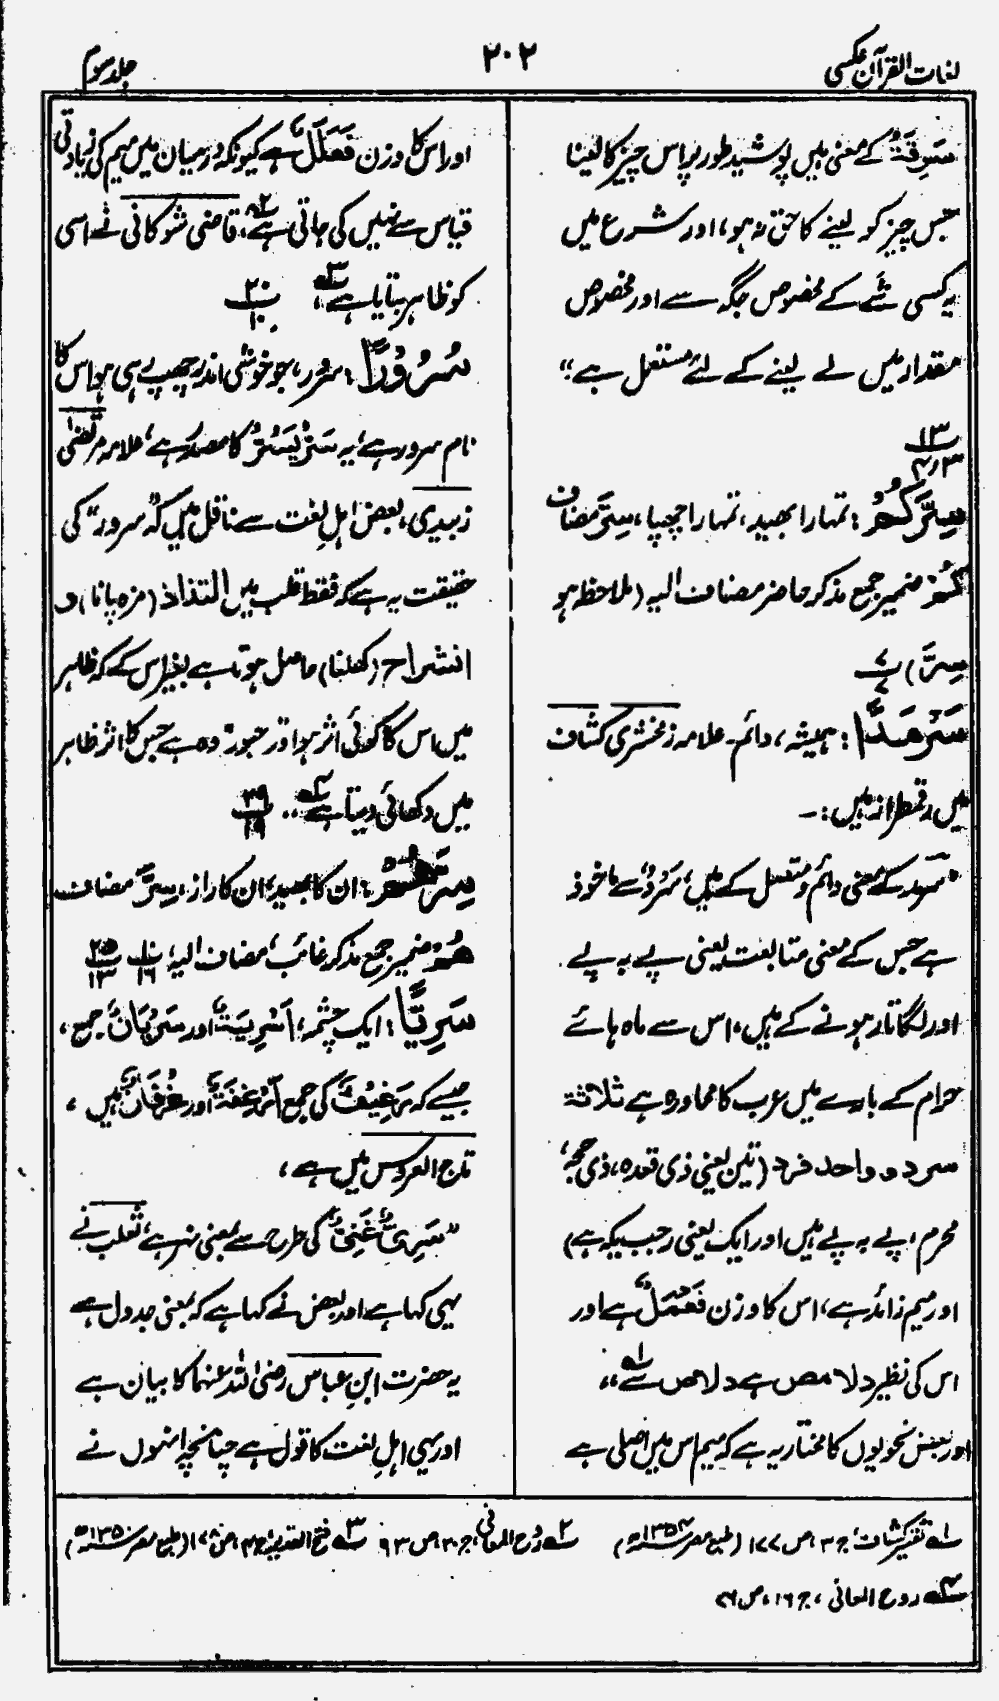 لغات القرآن عکسی
۲۰۲
جلد سوم
سَرِقَةٌ کے معنی ہیں پوشیدہ طور پر اس چیز کا لینا
جس چیز کو لینے کا حق نہ ہو، اور شرع میں
یہ کسی شے کے مخصوص جگہ سے اور مخصوص
مقدار میں لے لینے کے لئے مستعمل ہے"
۱۳
۳ر۴
سِرَّكُمْ : تمہارا بھید، تمہارا چھپا، سِرَّ مضاف
كُمْ ضمیر جمع مذکر حاضر مضاف الیہ (ملاحظہ ہو
سِرًّا) ۷
۷
سَرْمَدًا : ہمیشہ، دائم۔ علامہ زمخشری کشاف
میں رقمطراز ہیں :۔
"سرمد کے معنی دائم و متصل کے ہیں، سَرْدٌ سے ماخوذ
ہے جس کے معنی متابعت یعنی پے بہ پے
اور لگاتار ہونے کے ہیں، اس سے ماہ ہائے
حرام کے بارے میں عرب کا محاورہ ہے ثلاثة
سرد و واحد فرد (تین یعنی ذی قعدہ، ذی حجہ،
محرم، پے بہ پے ہیں اور ایک یعنی رجب یکہ ہے)
اور میم زائد ہے، اس کا وزن فَعْمَلٌ ہے اور
اس کی نظیر دلامص ہے دلاص سے ۱؎"
اور بعض نحویوں کا مختار یہ ہے کہ میم اس میں اصلی ہے
اور اس کا وزن فَعْلَلٌ ہے کیونکہ درمیان میں میم کی زیادتی
قیاس سے نہیں کی جاتی ہے ۲؎، قاضی شوکانی نے اسی
کو ظاہر بتایا ہے ۳؎، ۲۰
۱۰
سُرُوْرًا : سرور، جو خوشی اندر چھپے ہی ہو اس کا
نام سرور ہے، یہ سَرَّ يَسُرُّ کا مصدر ہے، علامہ مرتضیٰ
زبیدی، بعض اہلِ لغت سے ناقل ہیں کہ "سرور" کی
حقیقت یہ ہے کہ فقط قلب میں التذاذ (مزہ پانا) و
انشراح (کھلنا) حاصل ہوتا ہے بغیر اس کے کہ ظاہر
میں اس کا کوئی اثر ہو اور حبور" وہ ہے جس کا اثر ظاہر
میں دکھائی دیتا ہے ۴؎.. ۲۹
۱۹
سِرَّهُمْ : ان کا بھید، ان کا راز، سِرَّ مضاف
هُمْ ضمیر جمع مذکر غائب، مضاف الیہ، ۱۰
۱۶ ۲۵
۱۳
سَرِيًّا : ایک چشمہ، اَسْرِيَةٌ اور سَرْيَانٌ جمع،
جیسے کہ رَغِيْفٌ کی جمع اَرْغِفَةٌ اور رُغْفَانٌ ہیں،
تاج العروس میں ہے،
"سَرِيٌّ غَنِيٌّ کی طرح سے بمعنی نہر ہے، ثعلب نے
یہی کہا ہے اور بعض نے کہا ہے کہ بمعنی جدول ہے
یہ حضرت ابنِ عباس رضی اللہ عنہما کا بیان ہے
اور یہی اہلِ لغت کا قول ہے چنانچہ انہوں نے
۱؎ تفسیر کشاف: ج ۳، ص ۱۷۷ (طبع مصر ۱۳۵۴ھ) ۲؎ روح المعانی، ج ۲۰، ص ۹۳ ۳؎ فتح القدیر: ج ۴، ص ۱۷۸ (طبع مصر ۱۳۵۰ھ)
۴؎ روح المعانی، ج ۱۶، ص ۷۶